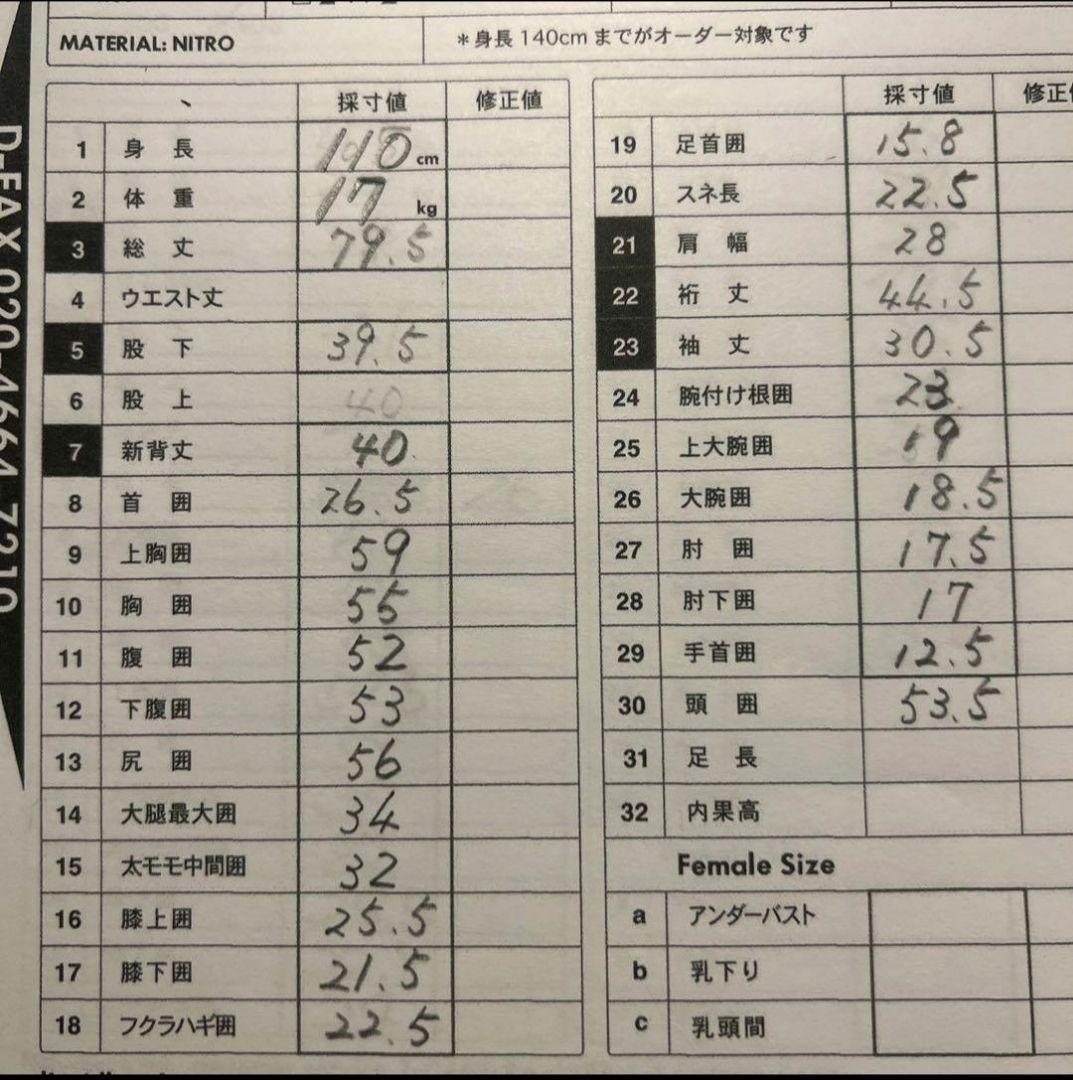 MATERIAL: NITRO
*身長140cmまでがオーダー対象です
D-FAX 020-4664-7210
、 採寸値 修正値
1 身長 110 cm
2 体重 17 kg
3 総丈 79.5
4 ウエスト丈
5 股下 39.5
6 股上 40
7 新背丈 40
8 首囲 26.5
9 上胸囲 59
10 胸囲 55
11 腹囲 52
12 下腹囲 53
13 尻囲 56
14 大腿最大囲 34
15 太モモ中間囲 32
16 膝上囲 25.5
17 膝下囲 21.5
18 フクラハギ囲 22.5
採寸値 修正
19 足首囲 15.8
20 スネ長 22.5
21 肩幅 28
22 裄丈 44.5
23 袖丈 30.5
24 腕付け根囲 23
25 上大腕囲 19
26 大腕囲 18.5
27 肘囲 17.5
28 肘下囲 17
29 手首囲 12.5
30 頭囲 53.5
31 足長
32 内果高
Female Size
a アンダーバスト
b 乳下り
c 乳頭間